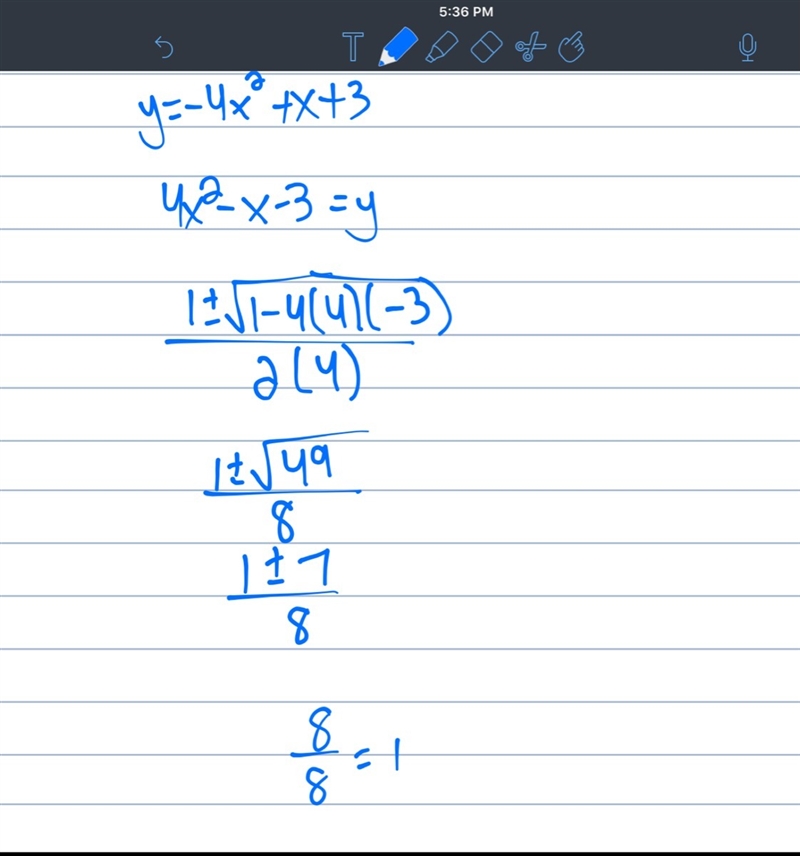 5:36 PM
T
y=-4x²+x+3
4x²-x-3=y
1±√1-4(4)(-3)
2(4)
1±√49
8
1±7
8
8
8 = 1